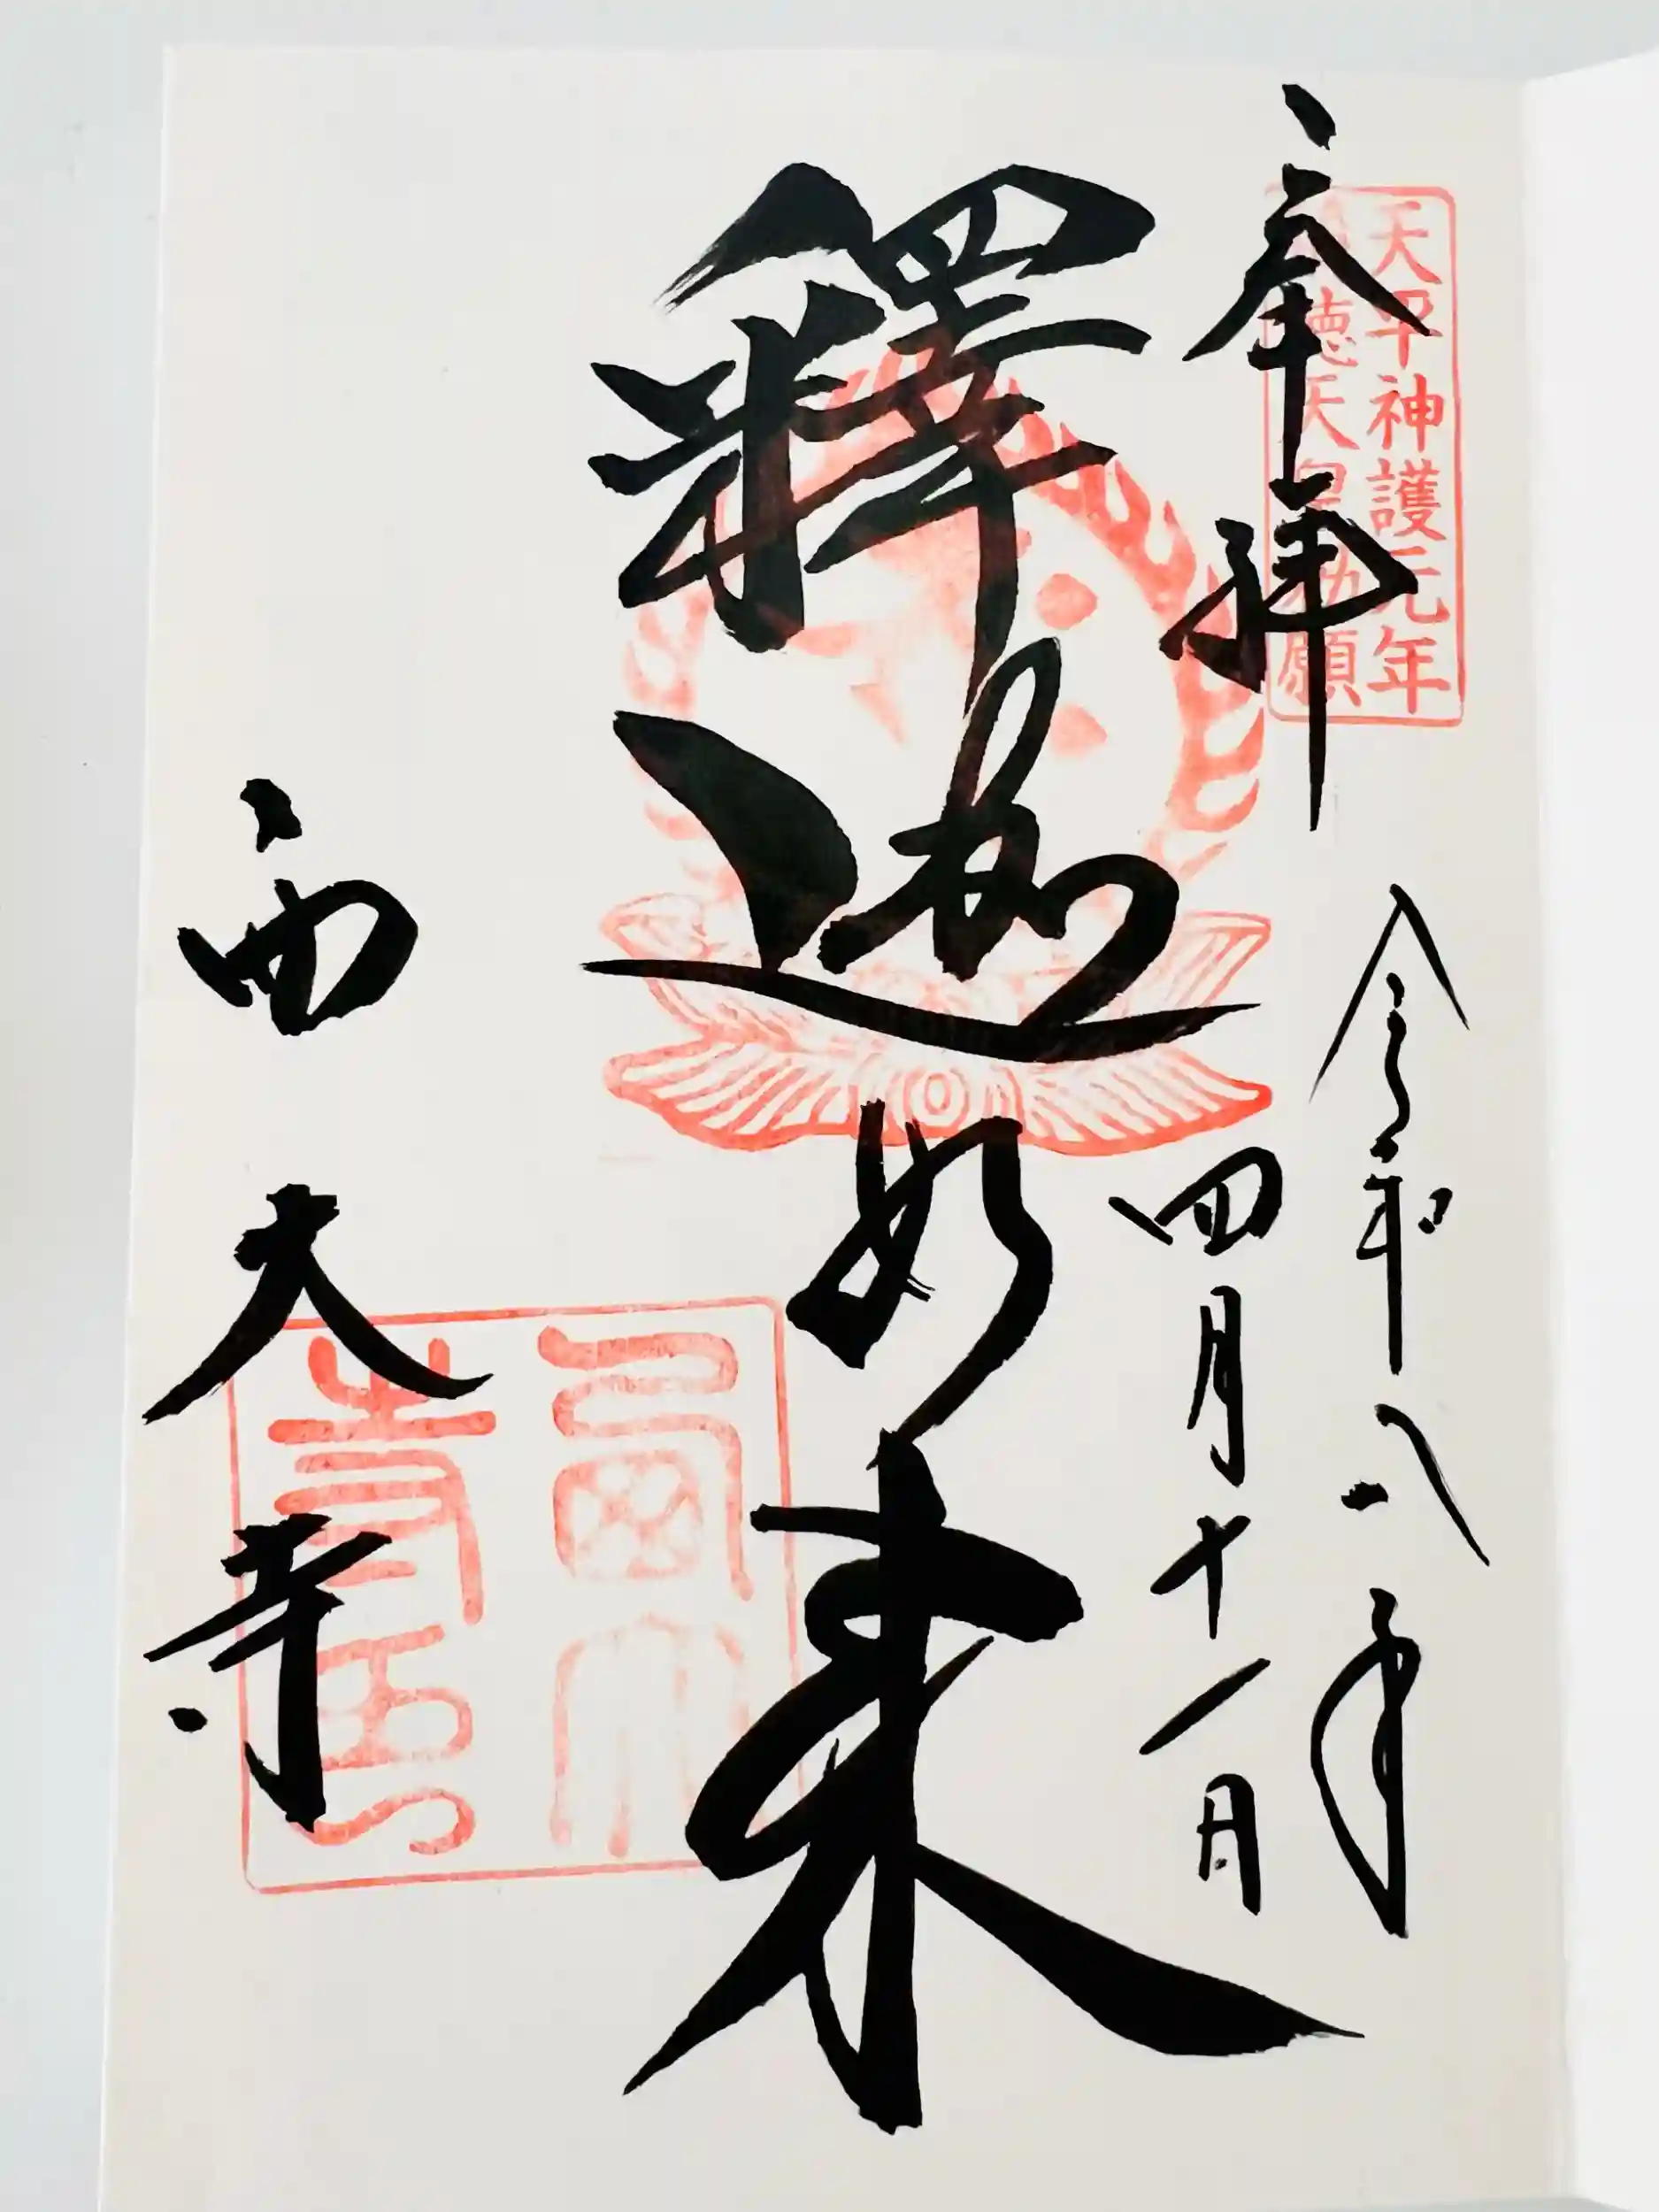 奉拝
天平神護元年
徳天皇勅願
令和八年
四月十一日
釋迦如来
西大寺